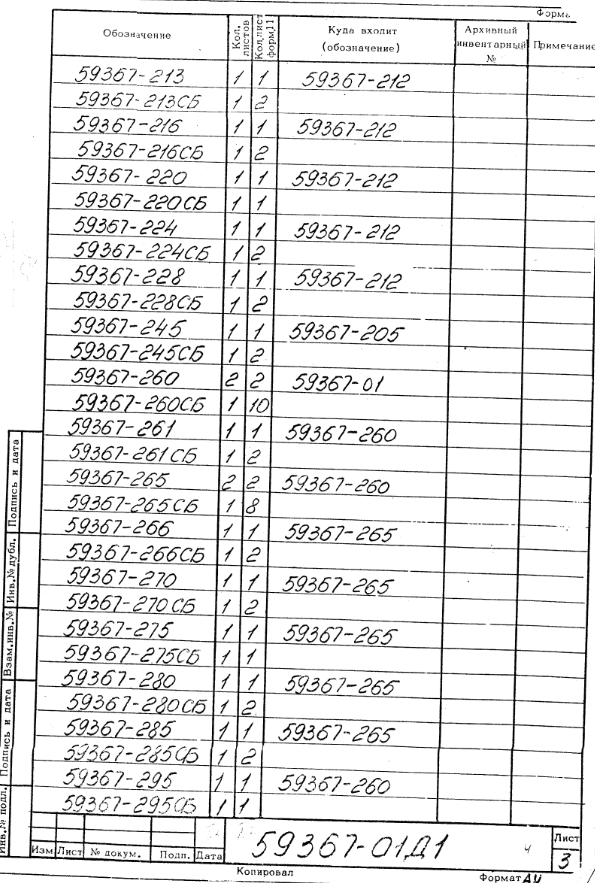 Форма
Обозначение Кол. листов Кол.лист форм.11 Куда входит (обозначение) Архивный инвентарный № Примечание
59367-213 1 1 59367-212
59367-213СБ 1 2
59367-216 1 1 59367-212
59367-216СБ 1 2
59367-220 1 1 59367-212
59367-220СБ 1 1
59367-224 1 1 59367-212
59367-224СБ 1 2
59367-228 1 1 59367-212
59367-228СБ 1 2
59367-245 1 1 59367-205
59367-245СБ 1 2
59367-260 2 2 59367-01
59367-260СБ 1 10
59367-261 1 1 59367-260
59367-261СБ 1 2
59367-265 2 2 59367-260
59367-265СБ 1 8
59367-266 1 1 59367-265
59367-266СБ 1 2
59367-270 1 1 59367-265
59367-270СБ 1 2
59367-275 1 1 59367-265
59367-275СБ 1 1
59367-280 1 1 59367-265
59367-280СБ 1 2
59367-285 1 1 59367-265
59367-285СБ 1 2
59367-295 1 1 59367-260
59367-295СБ 1 1
Подпись и дата
Инв.№ дубл.
Взам.инв.№
Подпись и дата
Инв.№ подл.
Изм Лист № докум. Подп. Дата
59367-01Д1 4
Лист
3
Копировал Формат А4